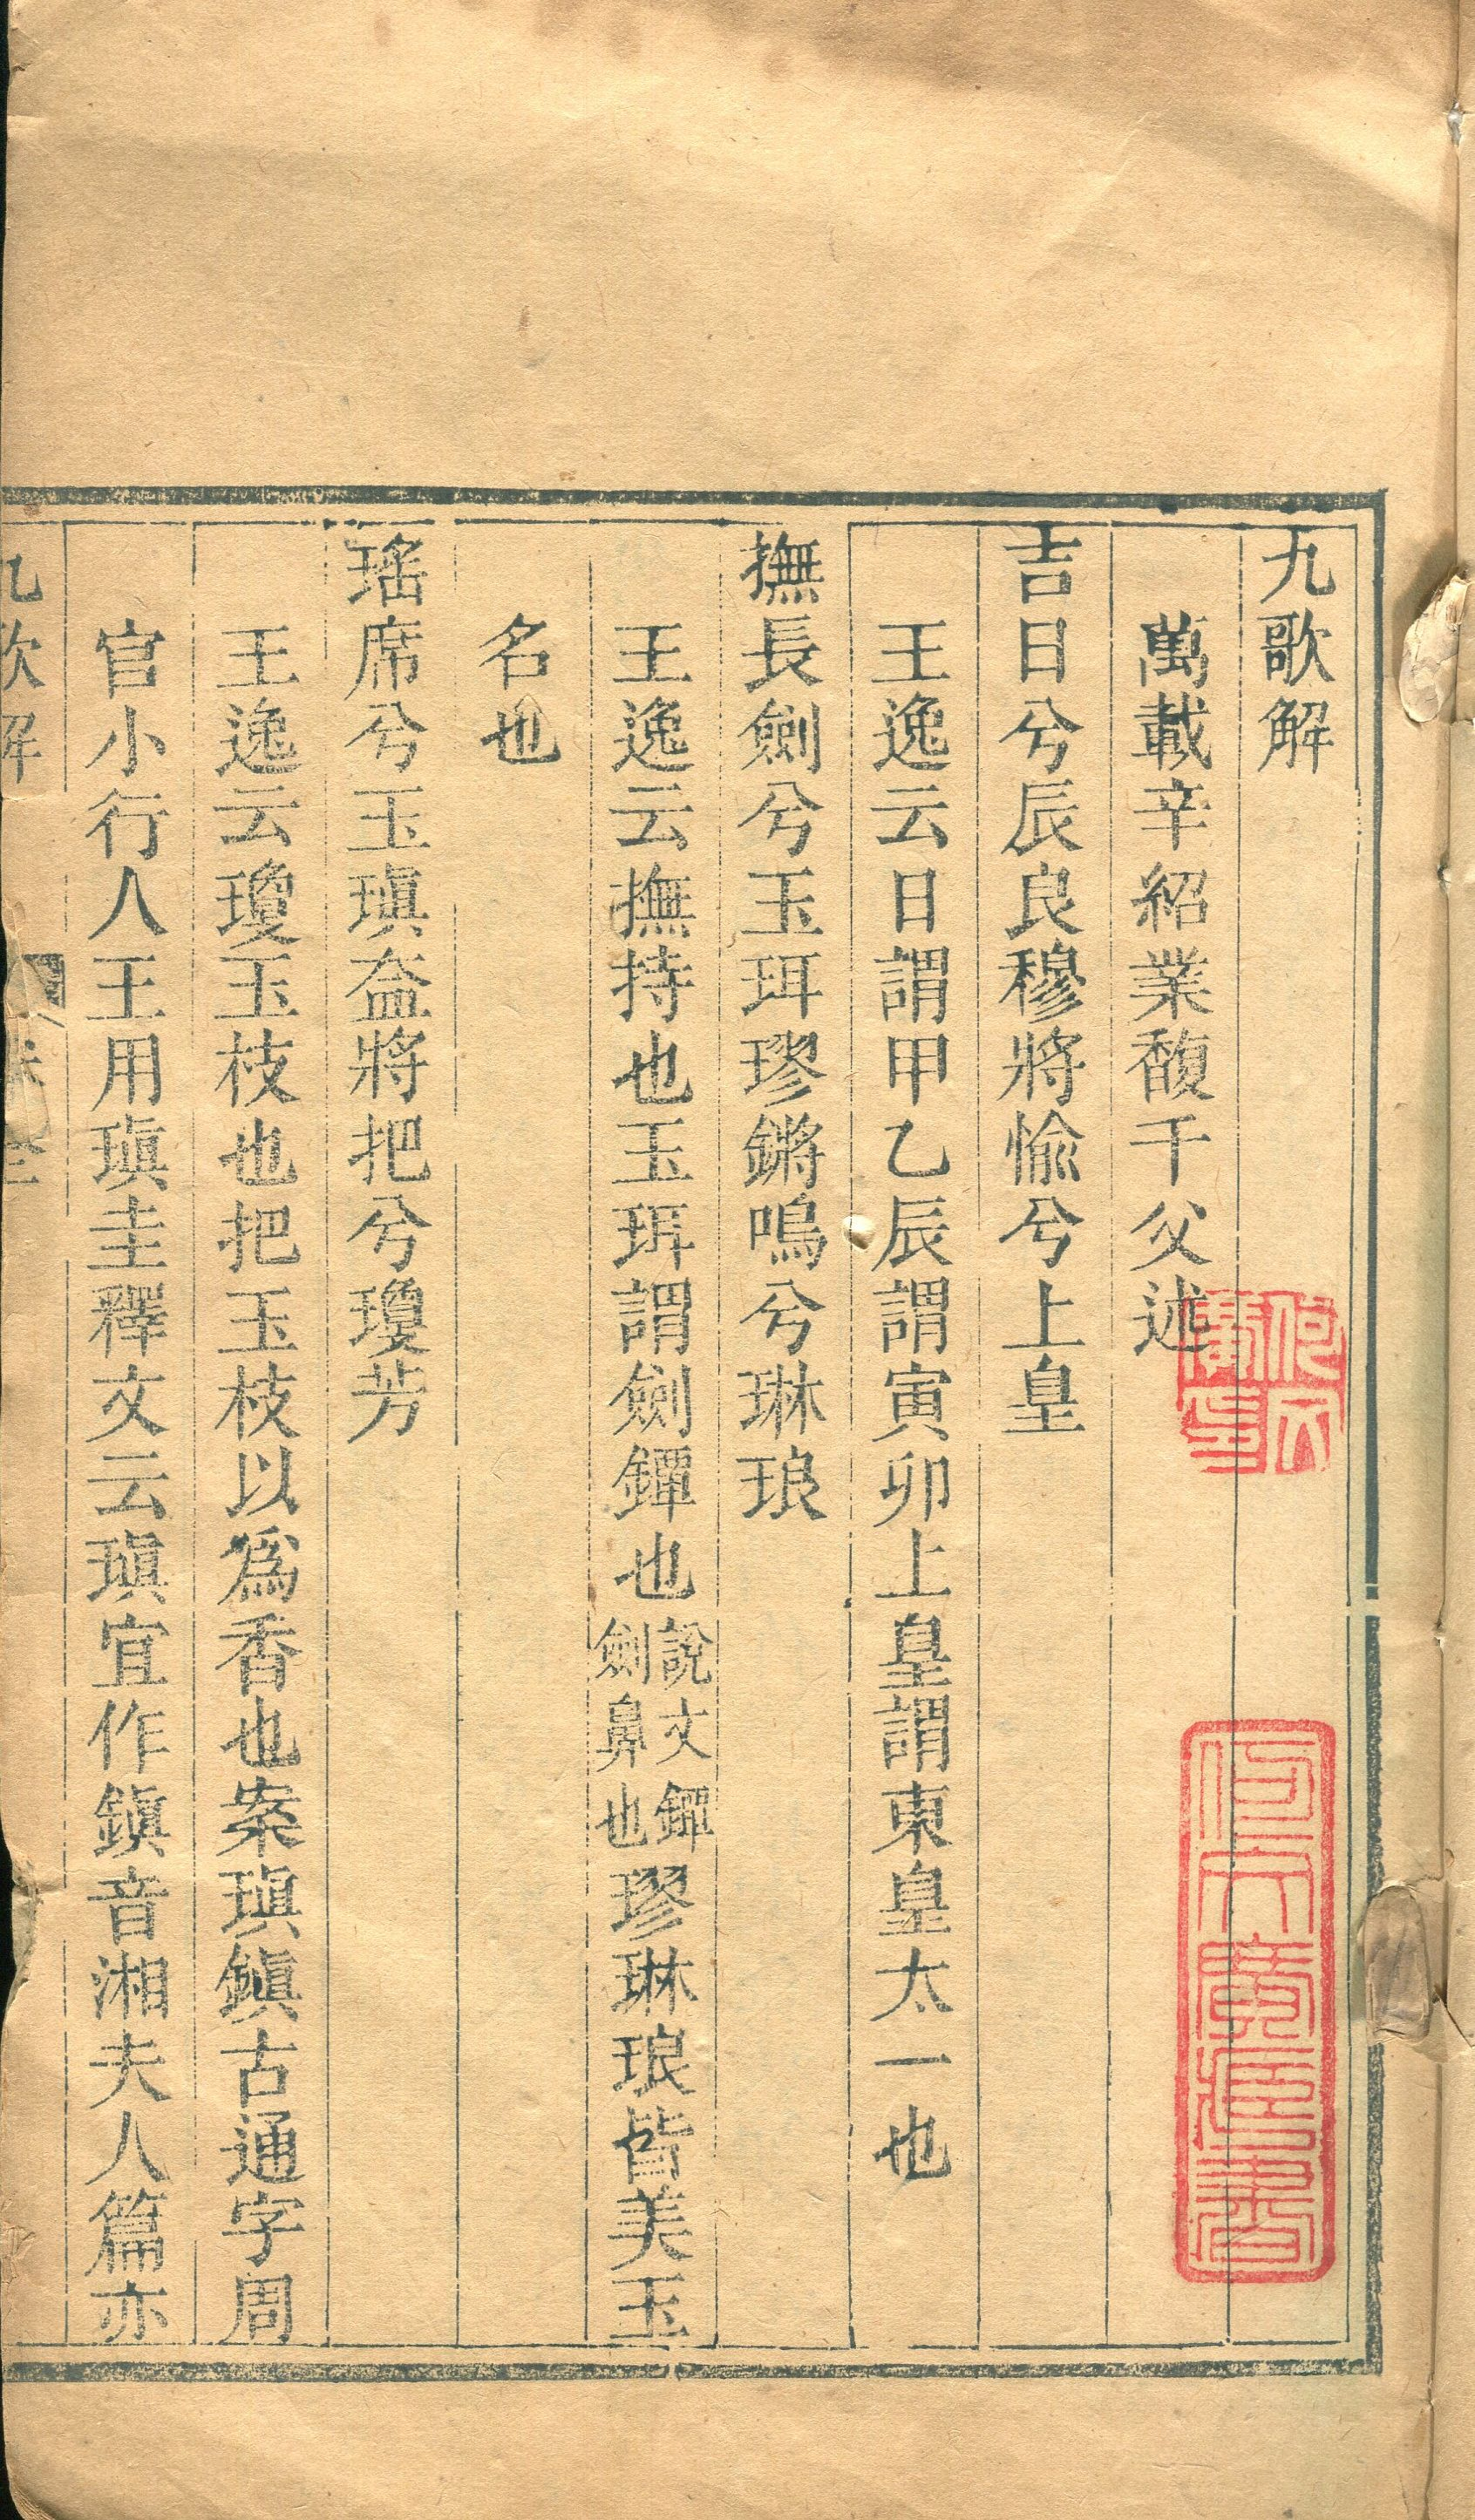 九歌解
萬載辛紹業馥千父述
吉日兮辰良穆將愉兮上皇
王逸云日謂甲乙辰謂寅卯上皇謂東皇太一也
撫長劍兮玉珥璆鏘鳴兮琳琅
王逸云撫持也玉珥謂劍鐔也說文鐔劍鼻也璆琳琅皆美玉
名也
瑤席兮玉瑱盍將把兮瓊芳
王逸云瓊玉枝也把玉枝以爲香也案瑱鎭古通字周
官小行人王用瑱圭釋文云瑱宜作鎭音湘夫人篇亦
九歌解